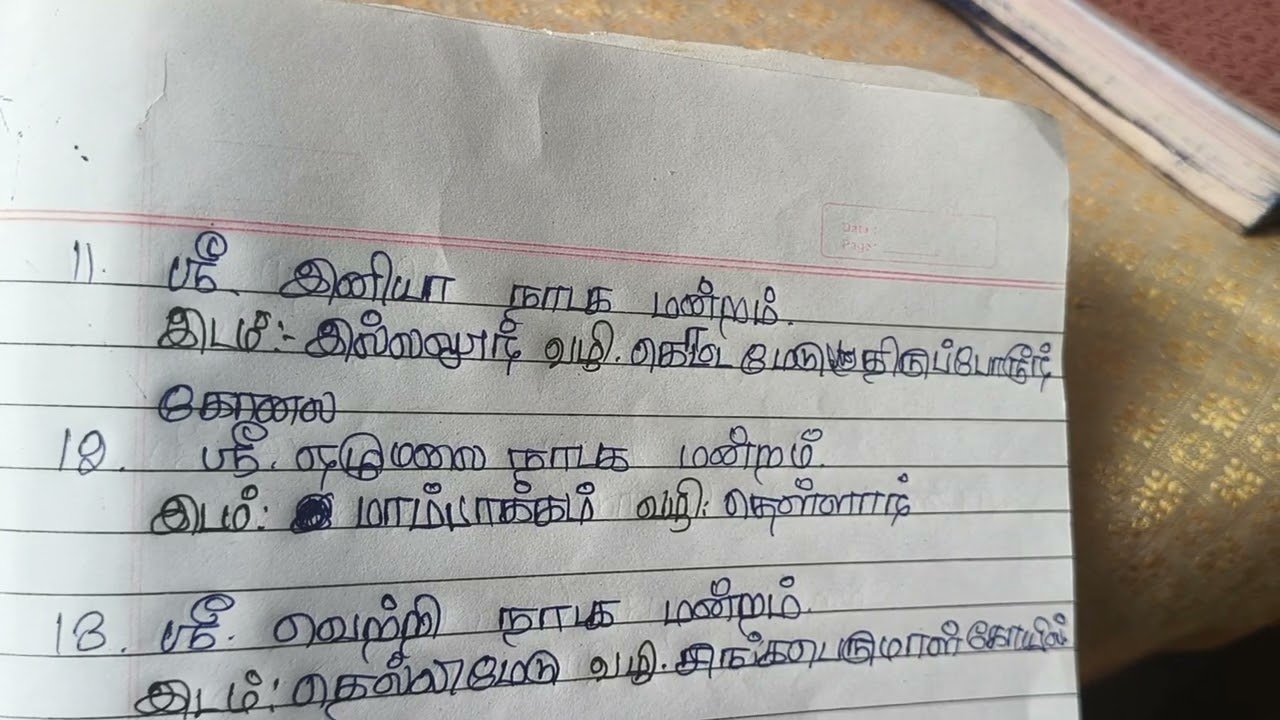 Date :
Page
11. ஸ்ரீ. இனியா நாடக மன்றம்.
இடம்:- இல்லலூர் வழி. திருப்போரூர்
12. ஸ்ரீ. ஏழுமலை நாடக மன்றம்.
இடம்: மாம்பாக்கம் வழி: தெள்ளார்
13. ஸ்ரீ. வெற்றி நாடக மன்றம்.
இடம்: நெல்லுமேடு வழி.